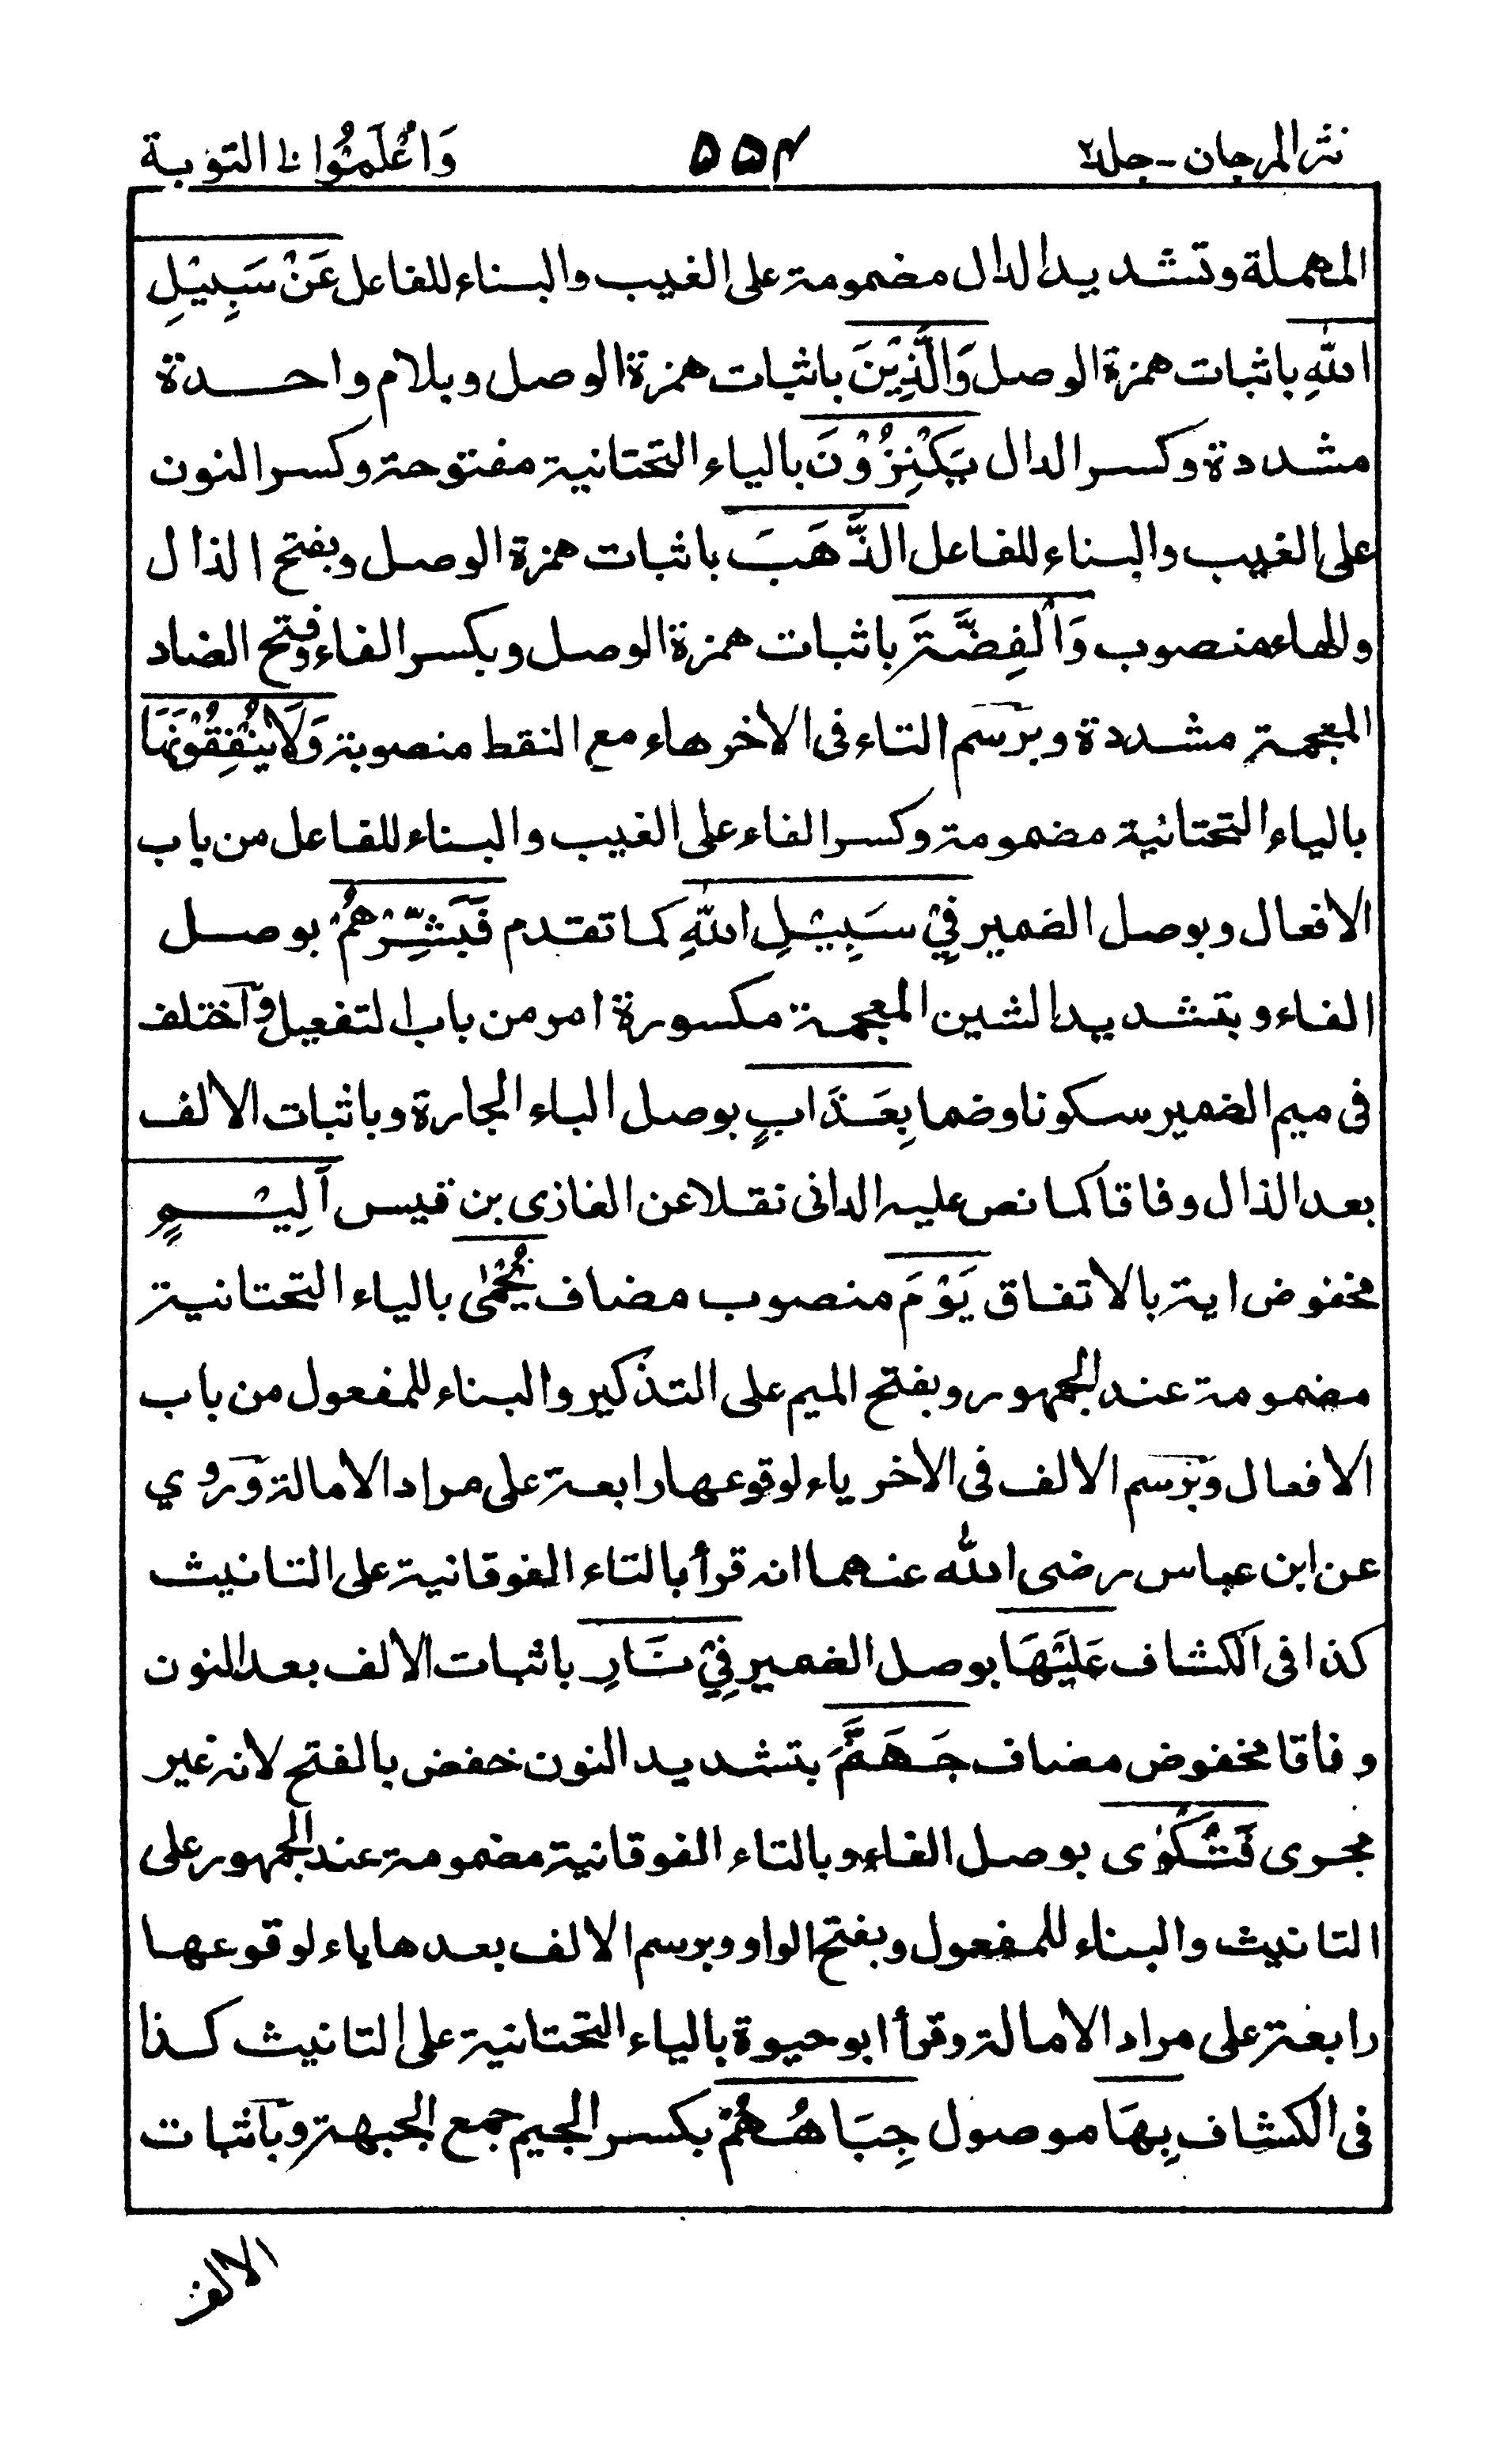 نثر المرجان - جلد٢
٥٥٤
وَاعْلَمُوْا ١٠ التوبة
المهملة وتشديد الدال مضمومة على الغيب والبناء للفاعل عَنْ سَبِيْلِ
اللهِ باثبات همزة الوصل وَالَّذِيْنَ باثبات همزة الوصل وبلام واحدة
مشددة وكسر الدال يَكْنِزُوْنَ بالياء التحتانية مفتوحة وكسر النون
على الغيب والبناء للفاعل الذَّهَبَ باثبات همزة الوصل وبفتح الذال
والهاء منصوب وَالْفِضَّةَ باثبات همزة الوصل وبكسر الفاء وفتح الضاد
المعجمة مشددة وبرسم التاء فى الاخر هاء مع النقط منصوبة وَلَا يُنْفِقُوْنَهَا
بالياء التحتانية مضمومة وكسر الفاء على الغيب والبناء للفاعل من باب
الافعال وبوصل الضمير فِيْ سَبِيْلِ اللهِ كما تقدم فَبَشِّرْهُمْ بوصل
الفاء وبتشديد الشين المعجمة مكسورة امر من باب التفعيل واختلف
فى ميم الضمير سكونا وضما بِعَذَابٍ بوصل الباء الجارة وباثبات الالف
بعد الذال وفاقا كما نص عليه الدانى نقلا عن الغازى بن قيس اَلِيْمٍ
مخفوض اية بالاتفاق يَوْمَ منصوب مضاف يُحْمٰى بالياء التحتانية
مضمومة عند الجمهور وبفتح الميم على التذكير والبناء للمفعول من باب
الافعال وبرسم الالف فى الاخر ياء لوقوعها رابعة على مراد الامالة وروي
عن ابن عباس رضى الله عنهما انه قرأ بالتاء الفوقانية على التانيث
كذا فى الكشاف عَلَيْهَا بوصل الضمير فِيْ نَارِ باثبات الالف بعد النون
وفاقا مخفوض مضاف جَهَنَّمَ بتشديد النون خفض بالفتح لانه غير
مجرى فَتُكْوٰى بوصل الفاء وبالتاء الفوقانية مضمومة عند الجمهور على
التانيث والبناء للمفعول وبفتح الواو وبرسم الالف بعدها ياء لوقوعها
رابعة على مراد الامالة وقرأ ابو حيوة بالياء التحتانية على التانيث كذا
فى الكشاف بِهَا موصول جِبَاهُهُمْ بكسر الجيم جمع الجبهة وباثبات
الالف